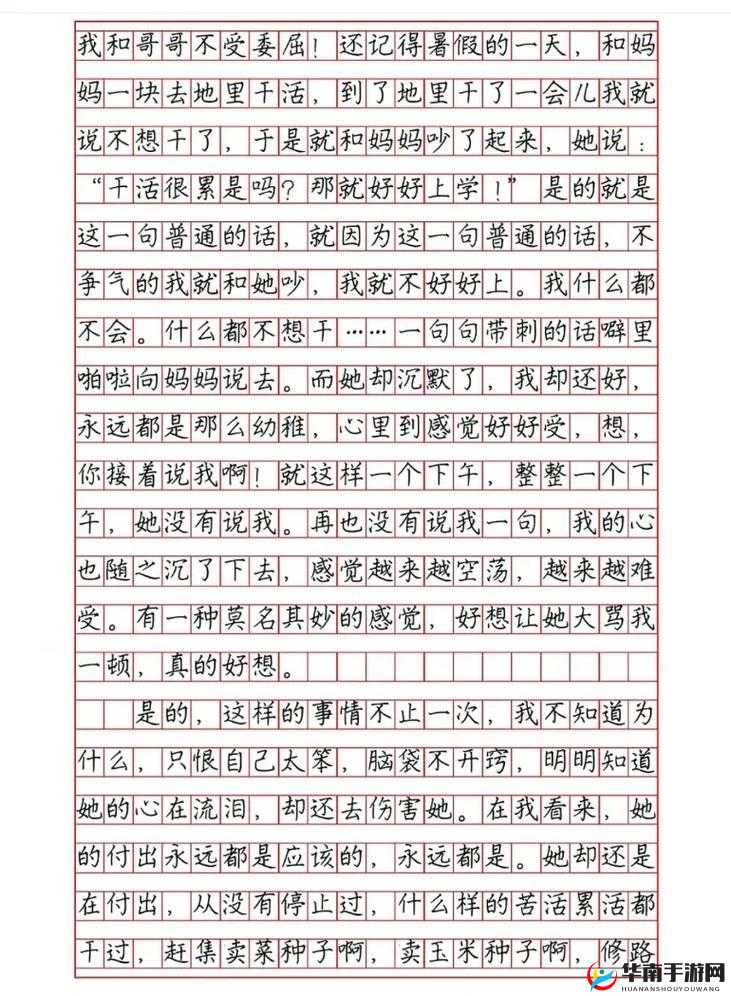 我和哥哥不受委屈！还记得暑假的一天，和妈
妈一块去地里干活，到了地里干了一会儿我就
说不想干了，于是就和妈妈吵了起来，她说：
“干活很累是吗？那就好好上学！”是的就是
这一句普通的话，就因为这一句普通的话，不
争气的我就和她吵，我就不好好上。我什么都
不会。什么都不想干……一句句带刺的话噼里
啪啦向妈妈说去。而她却沉默了，我却还好，
永远都是那么幼稚，心里到感觉好好受，想，
你接着说我啊！就这样一个下午，整整一个下
午，她没有说我。再也没有说我一句，我的心
也随之沉了下去，感觉越来越空荡，越来越难
受。有一种莫名其妙的感觉，好想让她大骂我
一顿，真的好想。
是的，这样的事情不止一次，我不知道为
什么，只恨自己太笨，脑袋不开窍，明明知道
她的心在流泪，却还去伤害她。在我看来，她
的付出永远都是应该的，永远都是。她却还是
在付出，从没有停止过，什么样的苦活累活都
干过，赶集卖菜种子啊，卖玉米种子啊，修路
华南手游网
HUANANSHOUYOUWANG